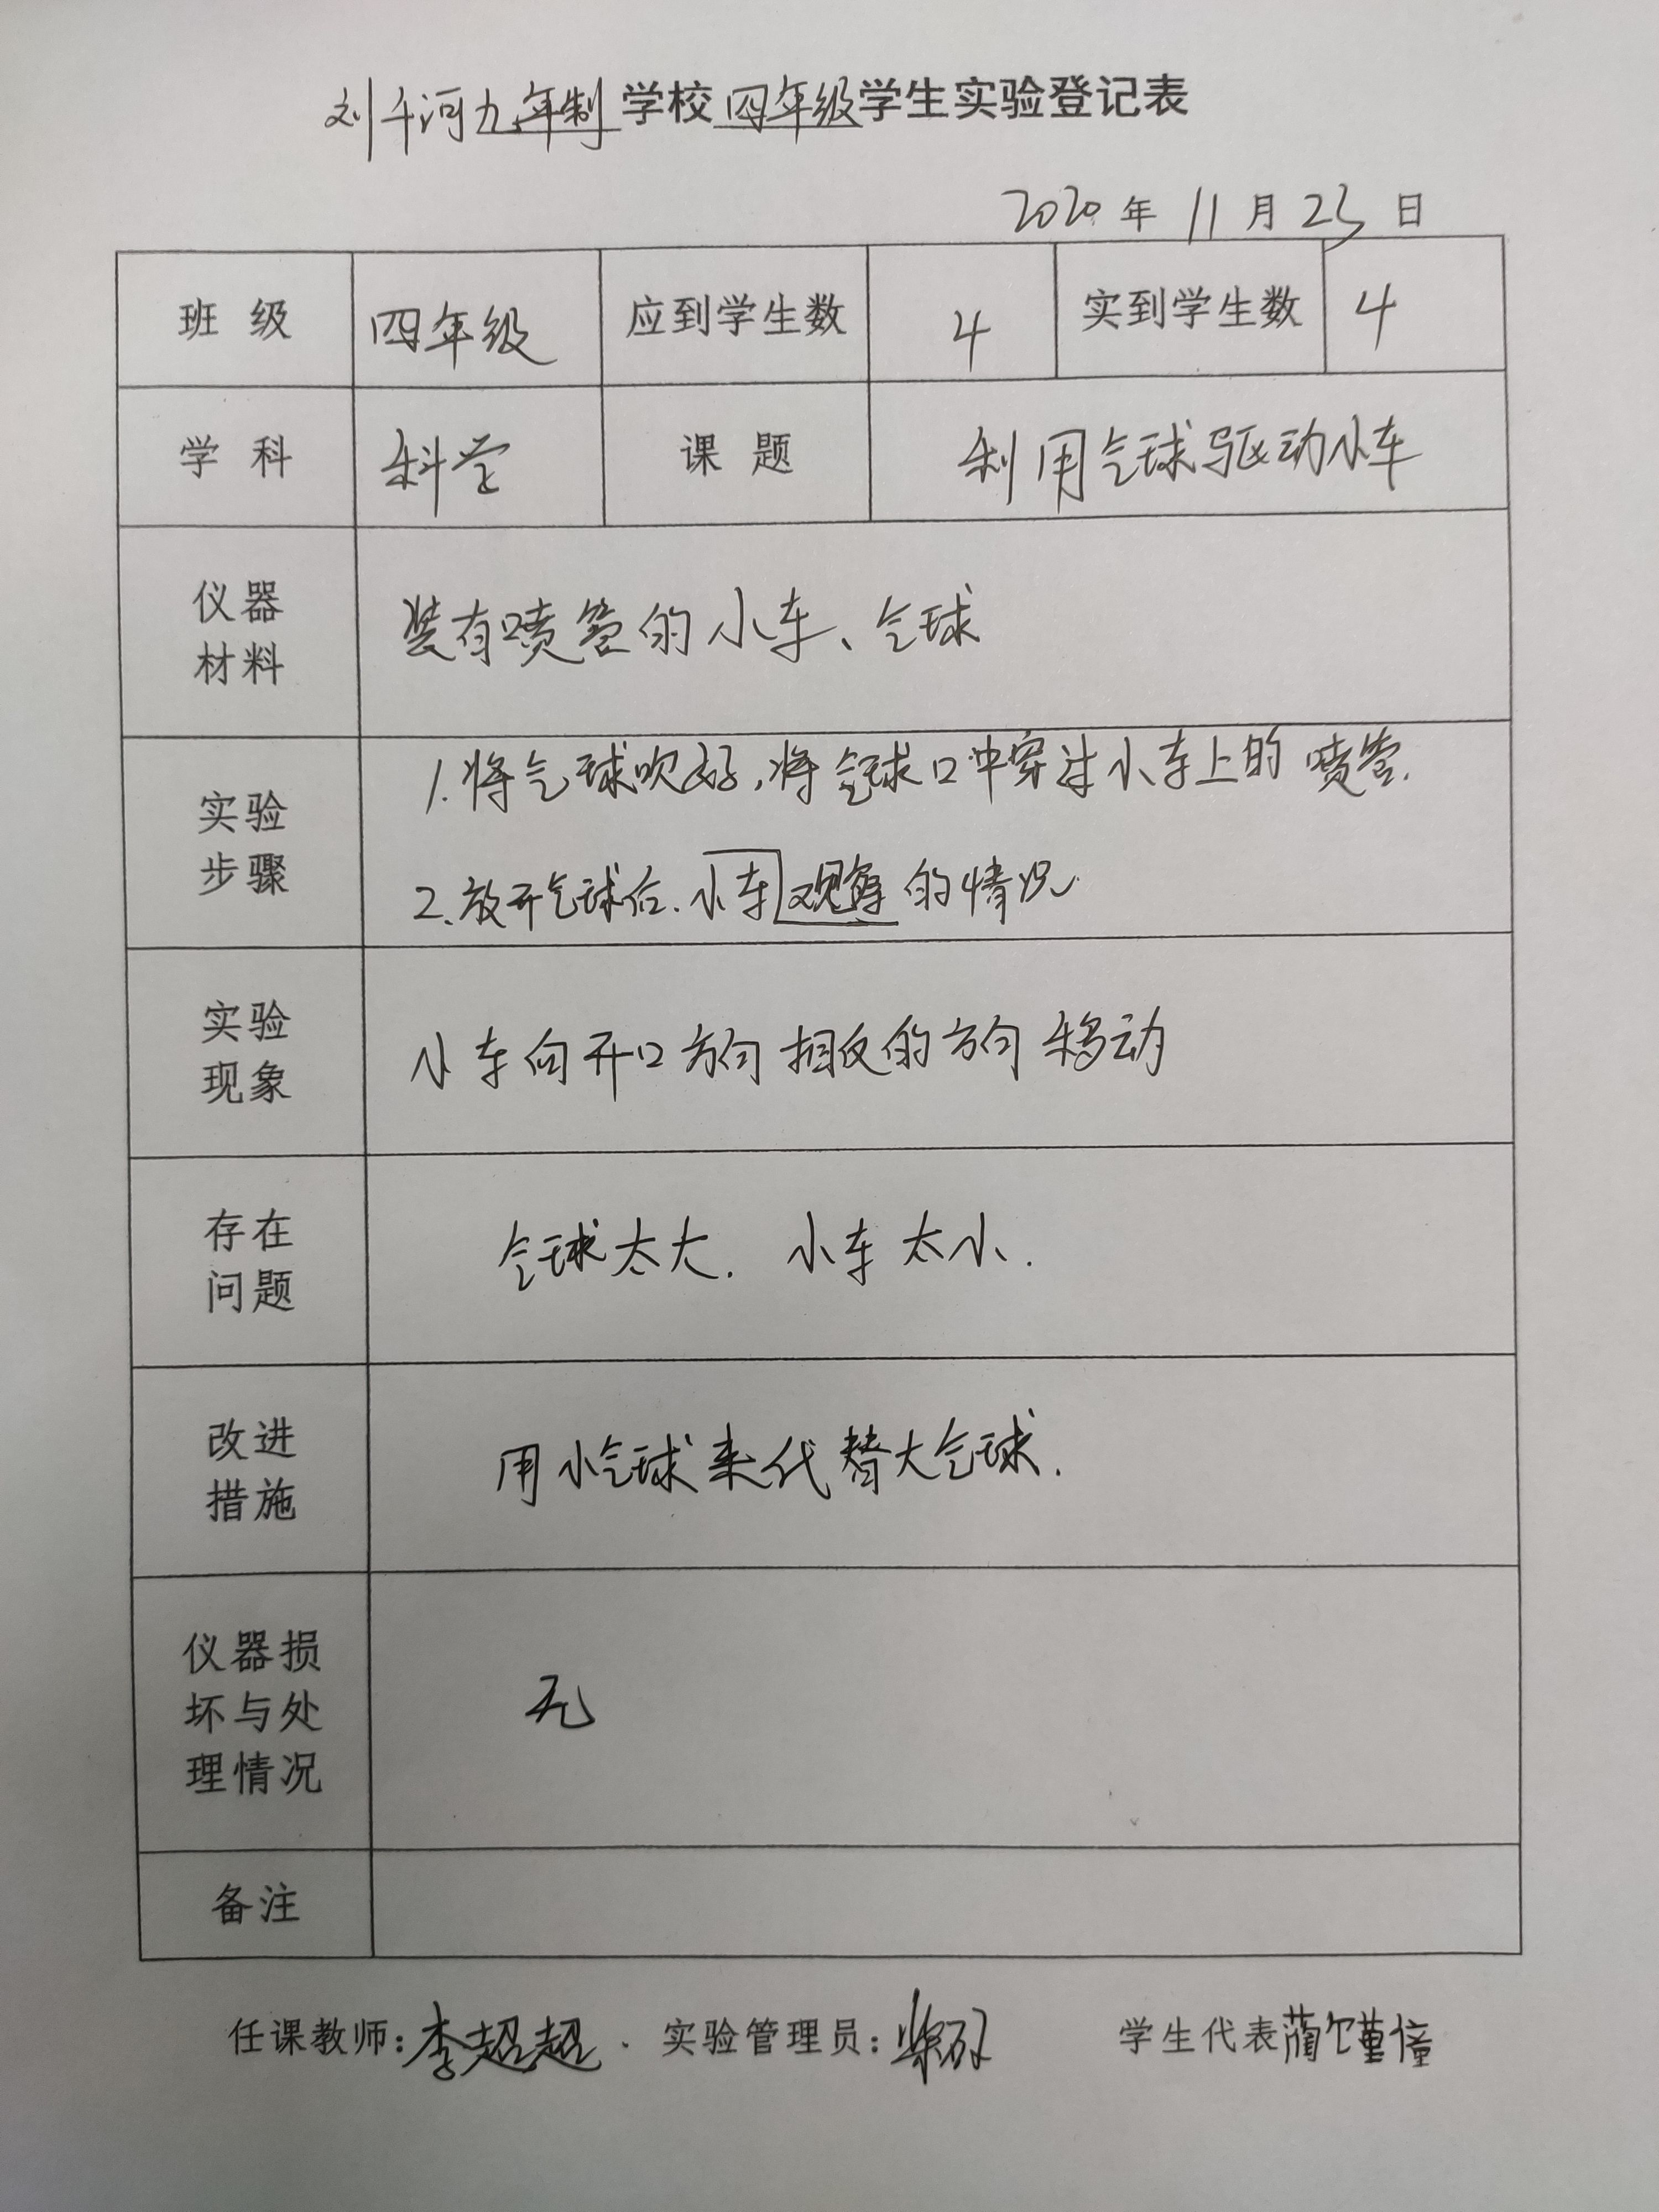 刘千河九年制学校四年级学生实验登记表
2020年11月23日
班 级 四年级 应到学生数 4 实到学生数 4
学 科 科学 课 题 利用气球驱动小车
仪器
材料
装有喷管的小车、气球
实验
步骤
1.将气球吹好,将气球口冲穿过小车上的喷管.
2.放开气球后.小车观察的情况
实验
现象
小车向开口方向相反的方向移动
存在
问题
气球太大. 小车太小.
改进
措施
用小气球来代替大气球.
仪器损
坏与处
理情况
无
备注
任课教师:李超超. 实验管理员: 学生代表